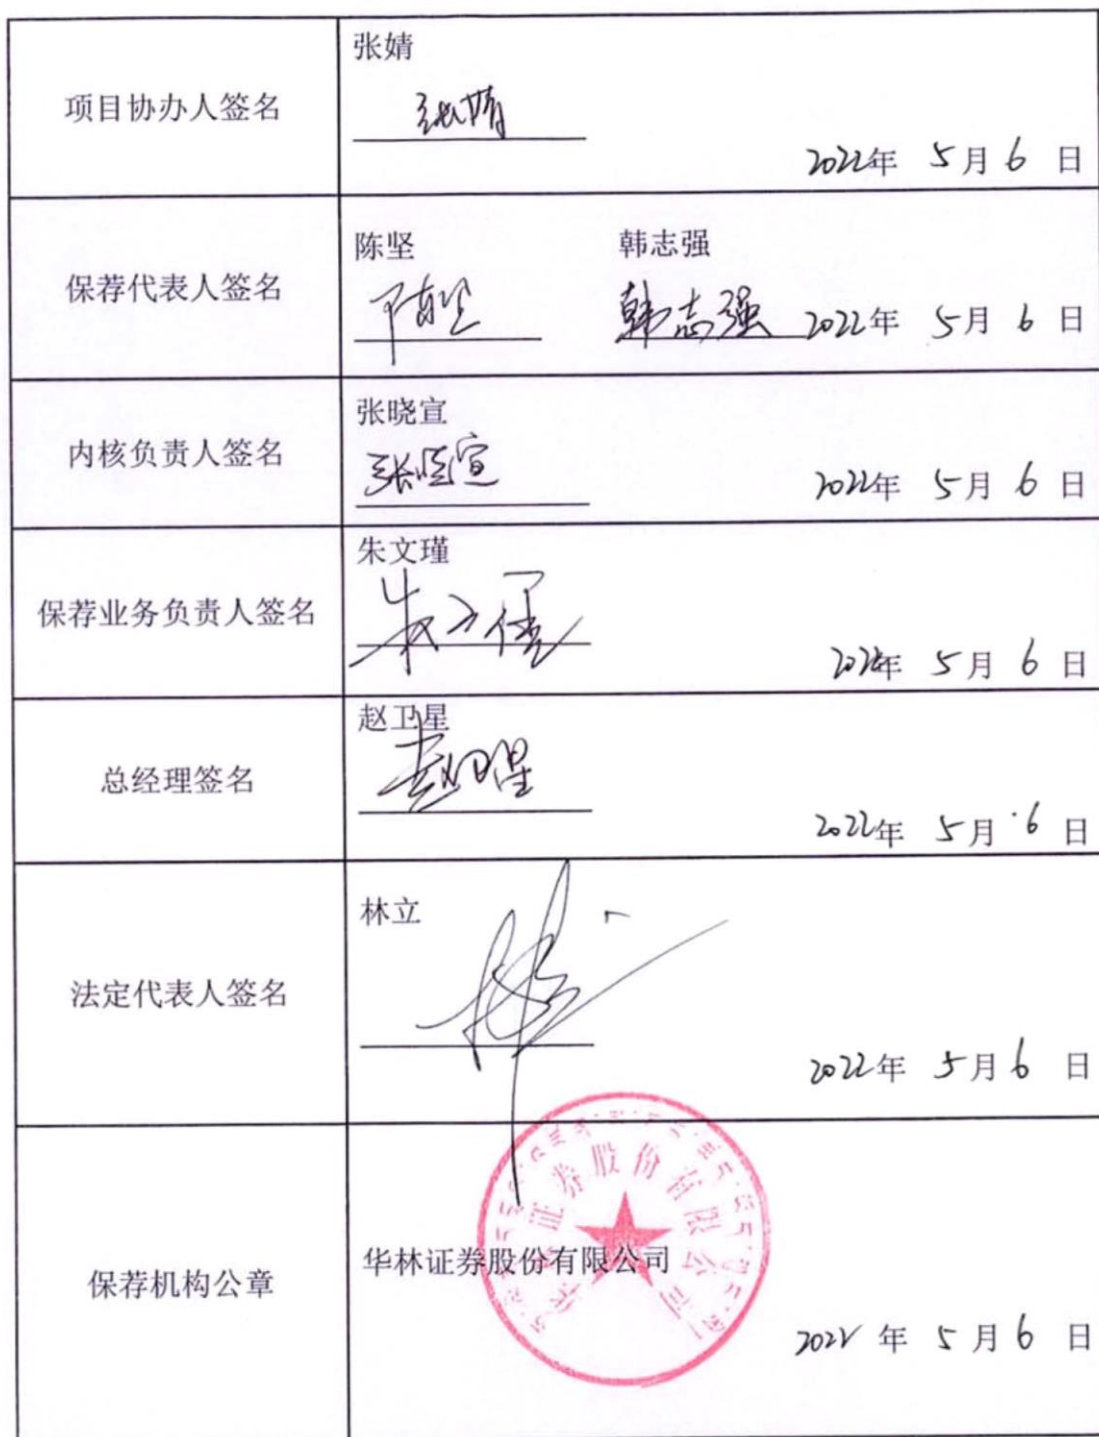 项目协办人签名
张婧
张婧
2022年 5月 6 日
保荐代表人签名
陈坚 韩志强
陈坚 韩志强 2022年 5月 6 日
内核负责人签名
张晓宣
张晓宣
2022年 5月 6 日
保荐业务负责人签名
朱文瑾
朱文瑾
2022年 5月 6 日
总经理签名
赵卫星
赵卫星
2022年 5月 6 日
法定代表人签名
林立
2022年 5月 6 日
保荐机构公章
华林证券股份有限公司
华林证券股份有限公司
2022 年 5 月 6 日